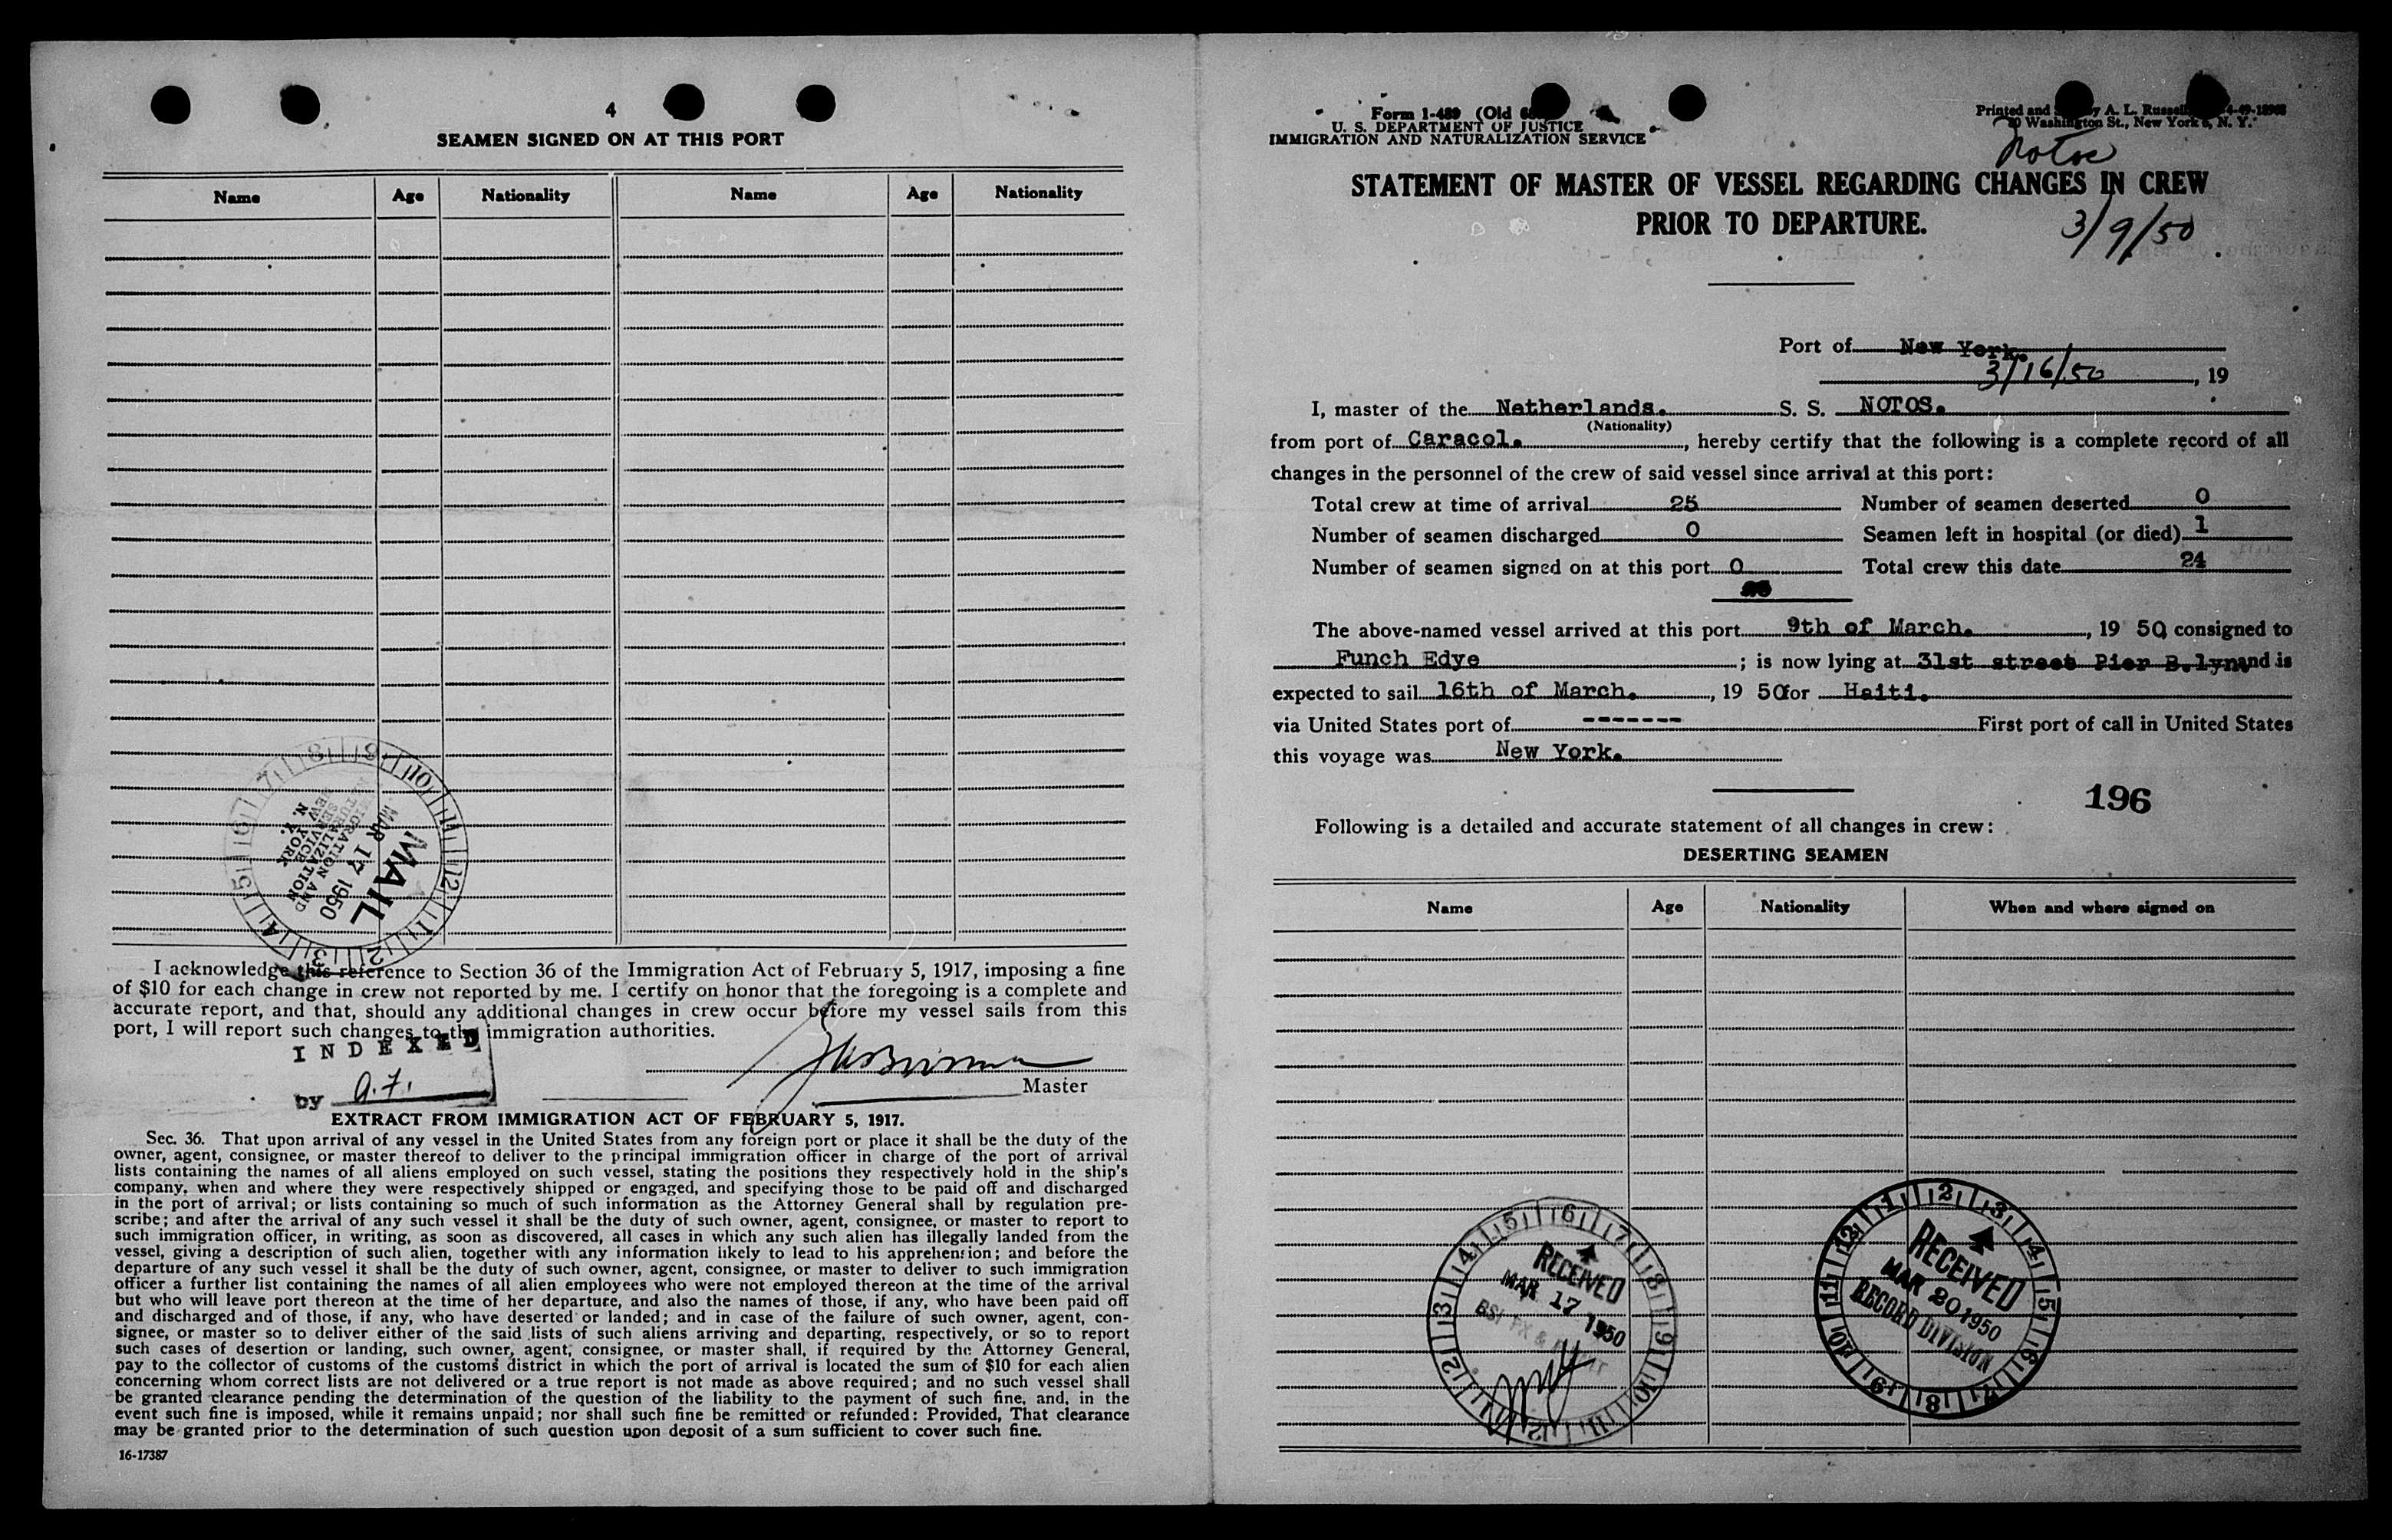 4
SEAMEN SIGNED ON AT THIS PORT
Name Age Nationality Name Age Nationality
MAIL
MAR 17 1950
IMMIGRATION AND
NATURALIZATION
SERVICE
NEW YORK
N. Y.
I acknowledge this reference to Section 36 of the Immigration Act of February 5, 1917, imposing a fine
of $10 for each change in crew not reported by me. I certify on honor that the foregoing is a complete and
accurate report, and that, should any additional changes in crew occur before my vessel sails from this
port, I will report such changes to the immigration authorities.
INDEXED
by a.f.
Master
EXTRACT FROM IMMIGRATION ACT OF FEBRUARY 5, 1917.
Sec. 36. That upon arrival of any vessel in the United States from any foreign port or place it shall be the duty of the
owner, agent, consignee, or master thereof to deliver to the principal immigration officer in charge of the port of arrival
lists containing the names of all aliens employed on such vessel, stating the positions they respectively hold in the ship's
company, when and where they were respectively shipped or engaged, and specifying those to be paid off and discharged
in the port of arrival; or lists containing so much of such information as the Attorney General shall by regulation pre-
scribe; and after the arrival of any such vessel it shall be the duty of such owner, agent, consignee, or master to report to
such immigration officer, in writing, as soon as discovered, all cases in which any such alien has illegally landed from the
vessel, giving a description of such alien, together with any information likely to lead to his apprehension; and before the
departure of any such vessel it shall be the duty of such owner, agent, consignee, or master to deliver to such immigration
officer a further list containing the names of all alien employees who were not employed thereon at the time of the arrival
but who will leave port thereon at the time of her departure, and also the names of those, if any, who have been paid off
and discharged and of those, if any, who have deserted or landed; and in case of the failure of such owner, agent, con-
signee, or master so to deliver either of the said lists of such aliens arriving and departing, respectively, or so to report
such cases of desertion or landing, such owner, agent, consignee, or master shall, if required by the Attorney General,
pay to the collector of customs of the customs district in which the port of arrival is located the sum of $10 for each alien
concerning whom correct lists are not delivered or a true report is not made as above required; and no such vessel shall
be granted clearance pending the determination of the question of the liability to the payment of such fine, and, in the
event such fine is imposed, while it remains unpaid; nor shall such fine be remitted or refunded: Provided, That clearance
may be granted prior to the determination of such question upon deposit of a sum sufficient to cover such fine.
16-17387
Form I-489 (Old
U. S. DEPARTMENT OF JUSTICE
IMMIGRATION AND NATURALIZATION SERVICE
Printed and by A. L. Russell
Washington St., New York 6, N. Y.
Notos
STATEMENT OF MASTER OF VESSEL REGARDING CHANGES IN CREW
PRIOR TO DEPARTURE.
3/9/50
Port of New York.
3/16/50, 19
I, master of the Netherlands. S. S. NOTOS.
(Nationality)
from port of Caracol., hereby certify that the following is a complete record of all
changes in the personnel of the crew of said vessel since arrival at this port:
Total crew at time of arrival 25 Number of seamen deserted 0
Number of seamen discharged 0 Seamen left in hospital (or died) 1
Number of seamen signed on at this port 0 Total crew this date 24
The above-named vessel arrived at this port 9th of March., 19 50, consigned to
Funch Edye; is now lying at 31st street Pier B.lyn and is
expected to sail 16th of March., 19 50 for Haiti.
via United States port of ------- First port of call in United States
this voyage was New York.
196
Following is a detailed and accurate statement of all changes in crew:
DESERTING SEAMEN
Name Age Nationality When and where signed on
RECEIVED
MAR 17 1950
RECEIVED
MAR 20 1950
RECORD DIVISION